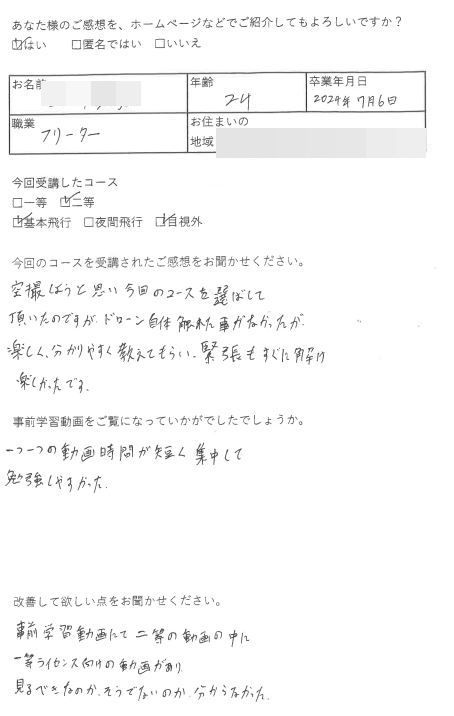 あなた様のご感想を、ホームページなどでご紹介してもよろしいですか？
☑はい　□匿名ではい　□いいえ
お名前
年齢
24
卒業年月日
2024年7月6日
職業
フリーター
お住まいの
地域
今回受講したコース
□一等　☑二等
☑基本飛行　□夜間飛行　☑目視外
今回のコースを受講されたご感想をお聞かせください。
空撮しようと思い今回のコースを選ばして
頂いたのですが、ドローン自体触れた事がなかったが
楽しく、分かりやすく教えてもらい、緊張もすぐに解け
楽しかったです。
事前学習動画をご覧になっていかがでしたでしょうか。
一つ一つの動画時間が短く集中して
勉強しやすかった。
改善して欲しい点をお聞かせください。
事前学習動画にて二等の動画の中に
一等ライセンス向けの動画があり
見るべきなのか、そうでないのか、分からなかった。